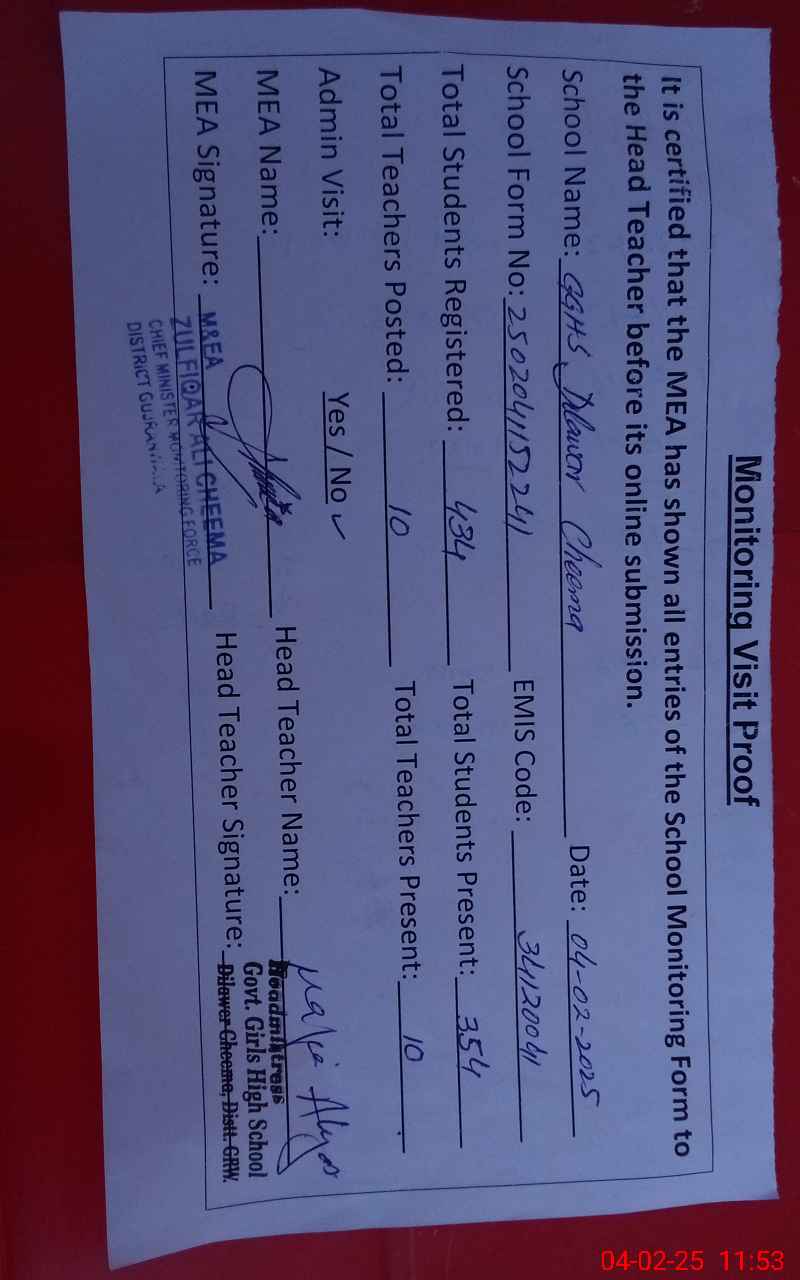 Monitoring Visit Proof
It is certified that the MEA has shown all entries of the School Monitoring Form to
the Head Teacher before its online submission.
School Name: GGHS Dilawar Cheema Date: 04-02-2025
School Form No: 2502041152241 EMIS Code: 34120041
Total Students Registered: 434 Total Students Present: 354
Total Teachers Posted: 10 Total Teachers Present: 10
Admin Visit: Yes / No ✓
MEA Name: Head Teacher Name:
MEA Signature: Head Teacher Signature:
M&EA
ZULFIQAR ALI CHEEMA
CHIEF MINISTER MONITORING FORCE
DISTRICT GUJRANWALA
Headmistress
Govt. Girls High School
Dilawar Cheema, Distt. GRW.
04-02-25 11:53